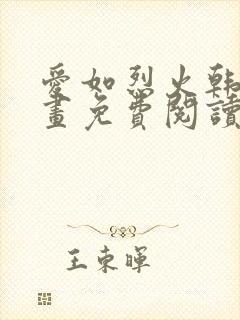 愛如烈火韩
畫免費閱讀
王東暉